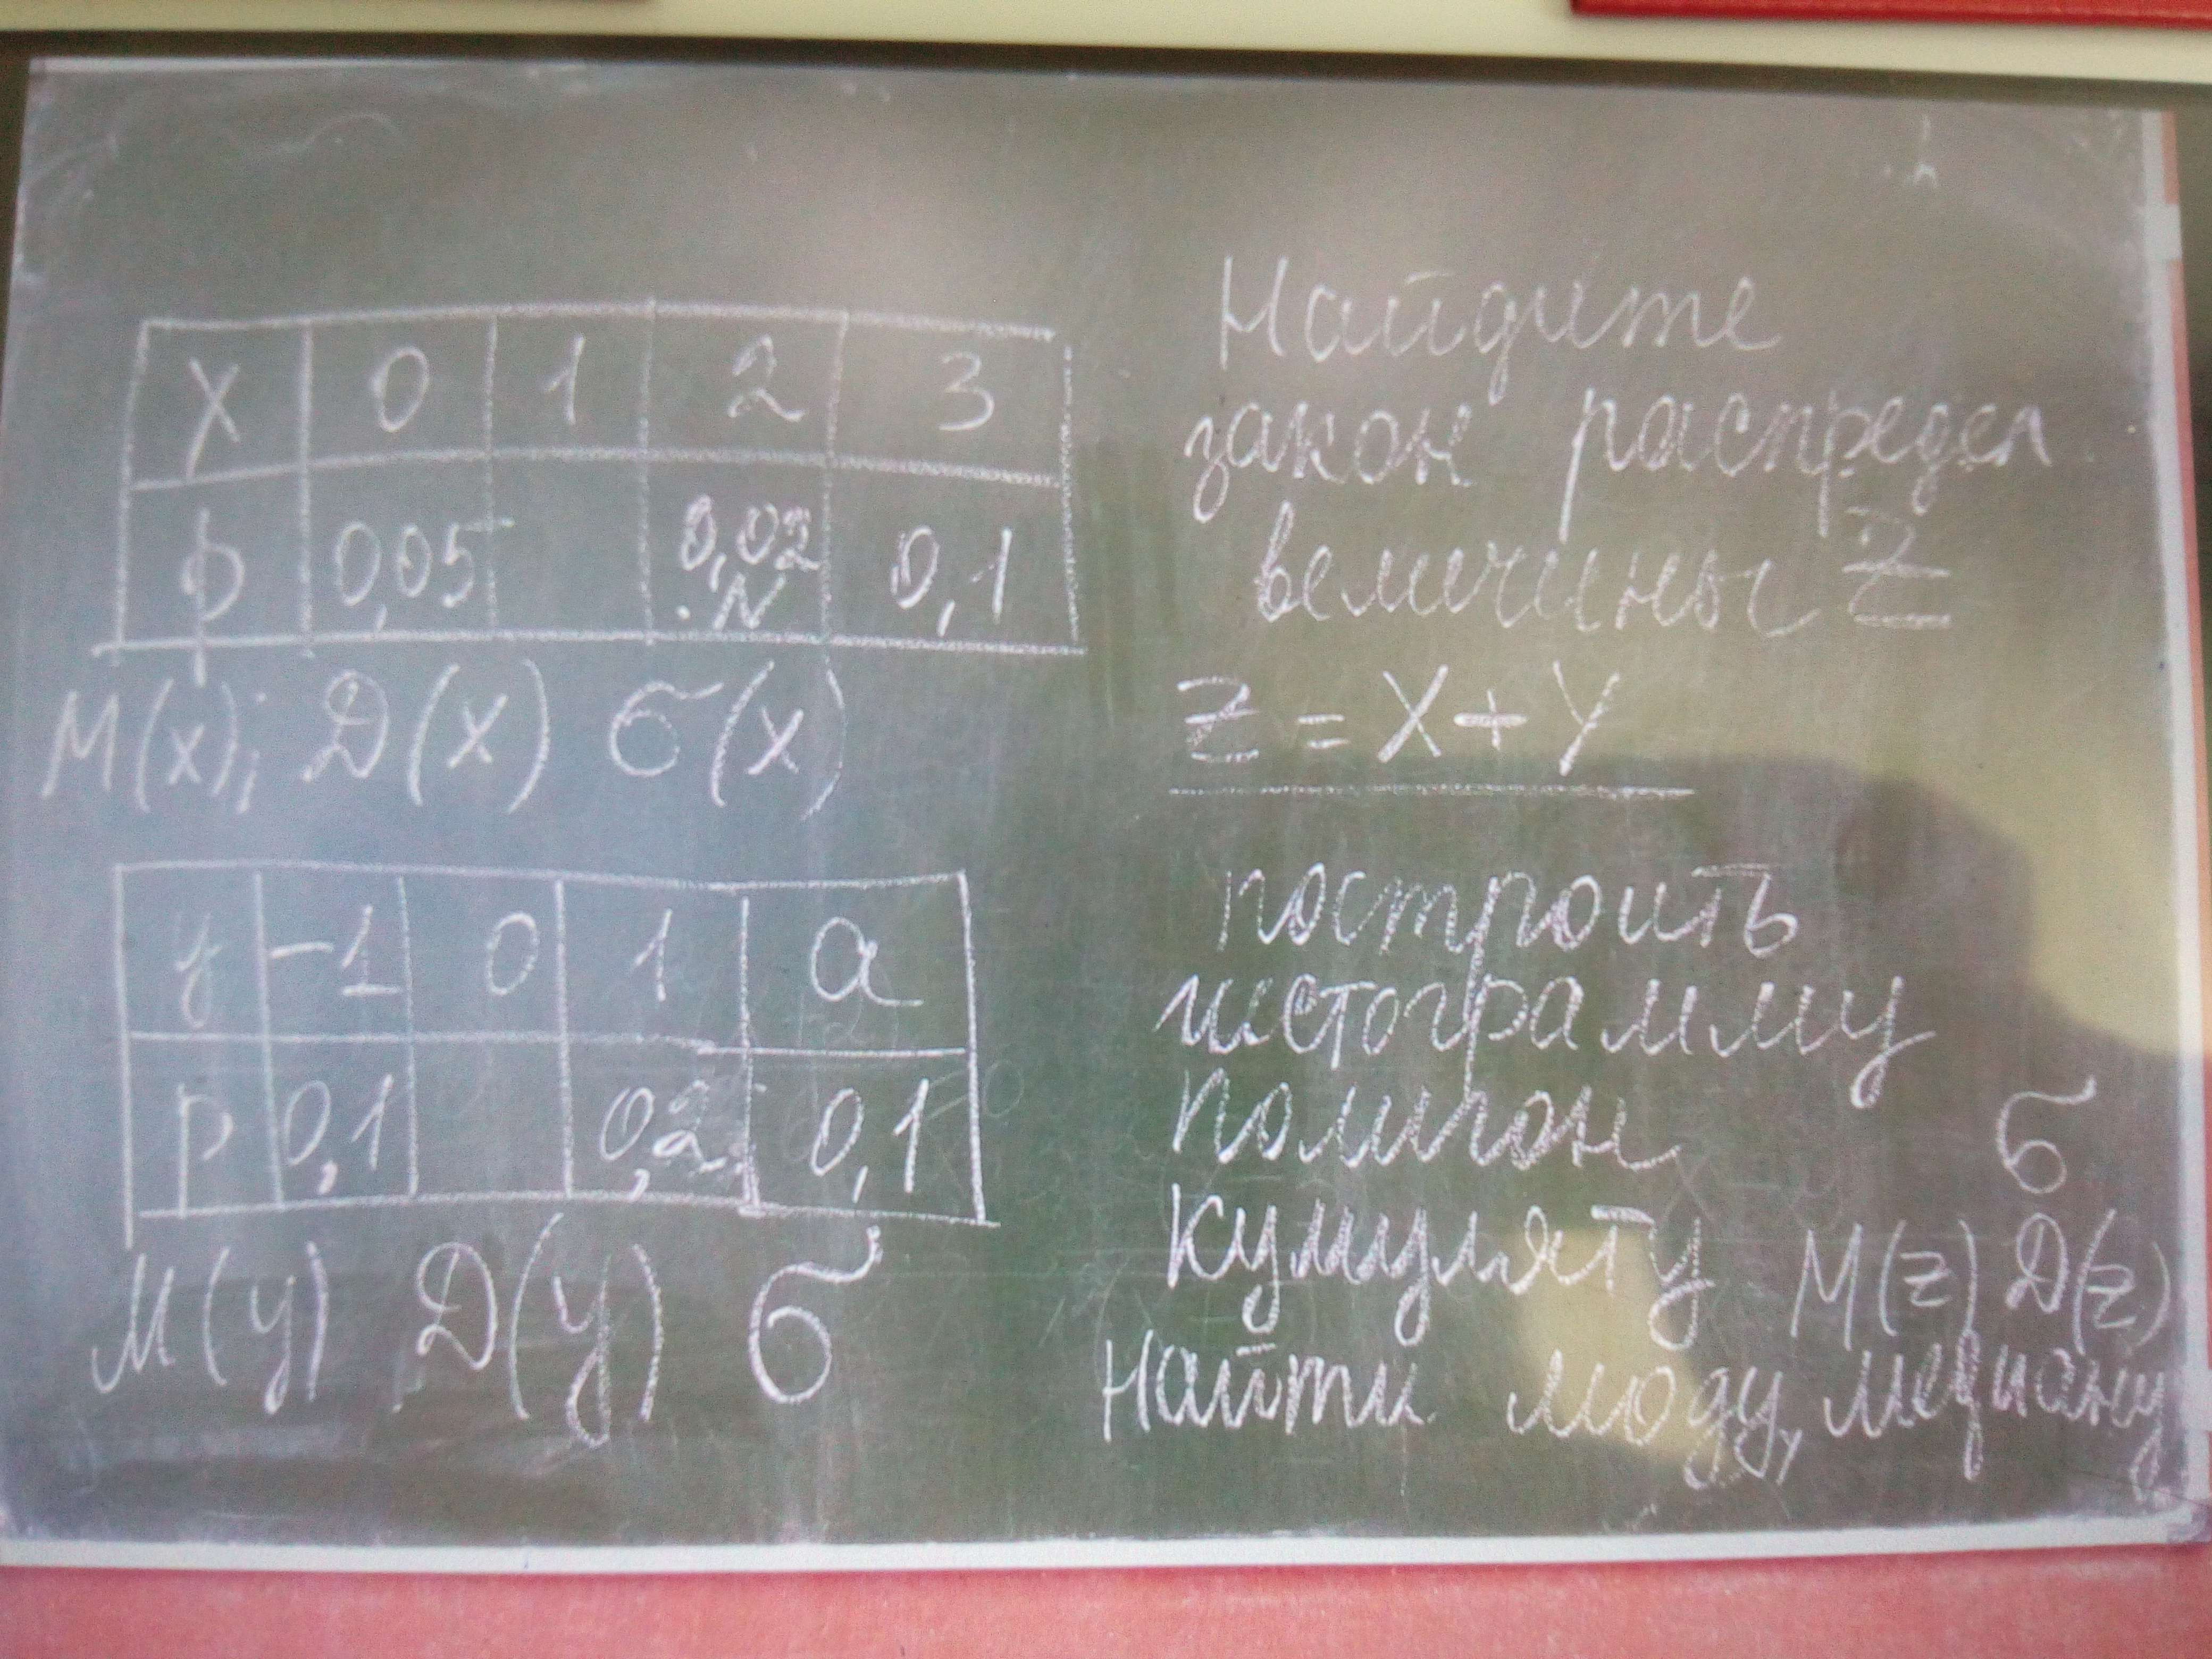 X 0 1 2 3
p 0,05 0,02 · N 0,1
M(x); D(x) σ(x)
y -1 0 1 a
p 0,1 0,2 0,1
M(y) D(y) σ
Найдите
закон распредел
величины Z
Z = X + Y
построить
гистограмму
полигон
кумуляту
σ
M(z) D(z)
Найти моду, медиану